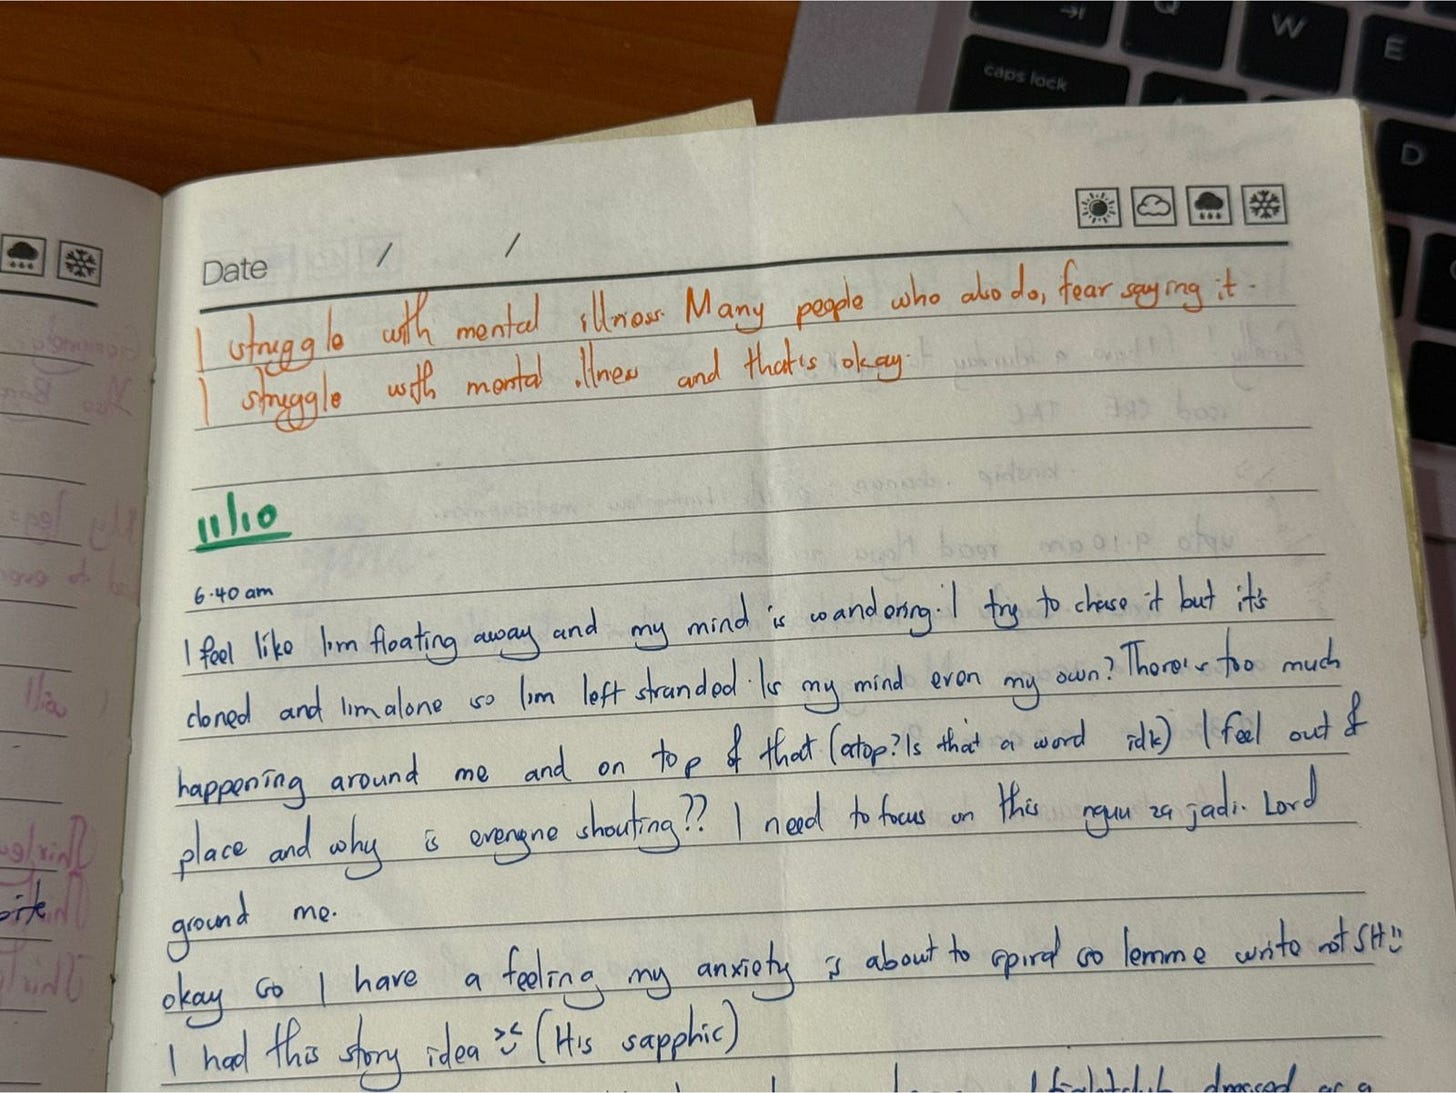 caps lock
Q
W
E
D
Date / /
I struggle with mental illness. Many people who also do, fear saying it.
I struggle with mental illness and that's okay.
11/10
6.40 am
I feel like I'm floating away and my mind is wandering. I try to chase it but it's
cloned and I'm alone so I'm left stranded. Is my mind even my own? There's too much
happening around me and on top of that (atop? Is that a word idk) I feel out of
place and why is everyone shouting?? I need to focus on this nguu za jadi. Lord
ground me.
okay so I have a feeling my anxiety is about to spiral so lemme write not SH
I had this story idea (It's sapphic)
dressed as a